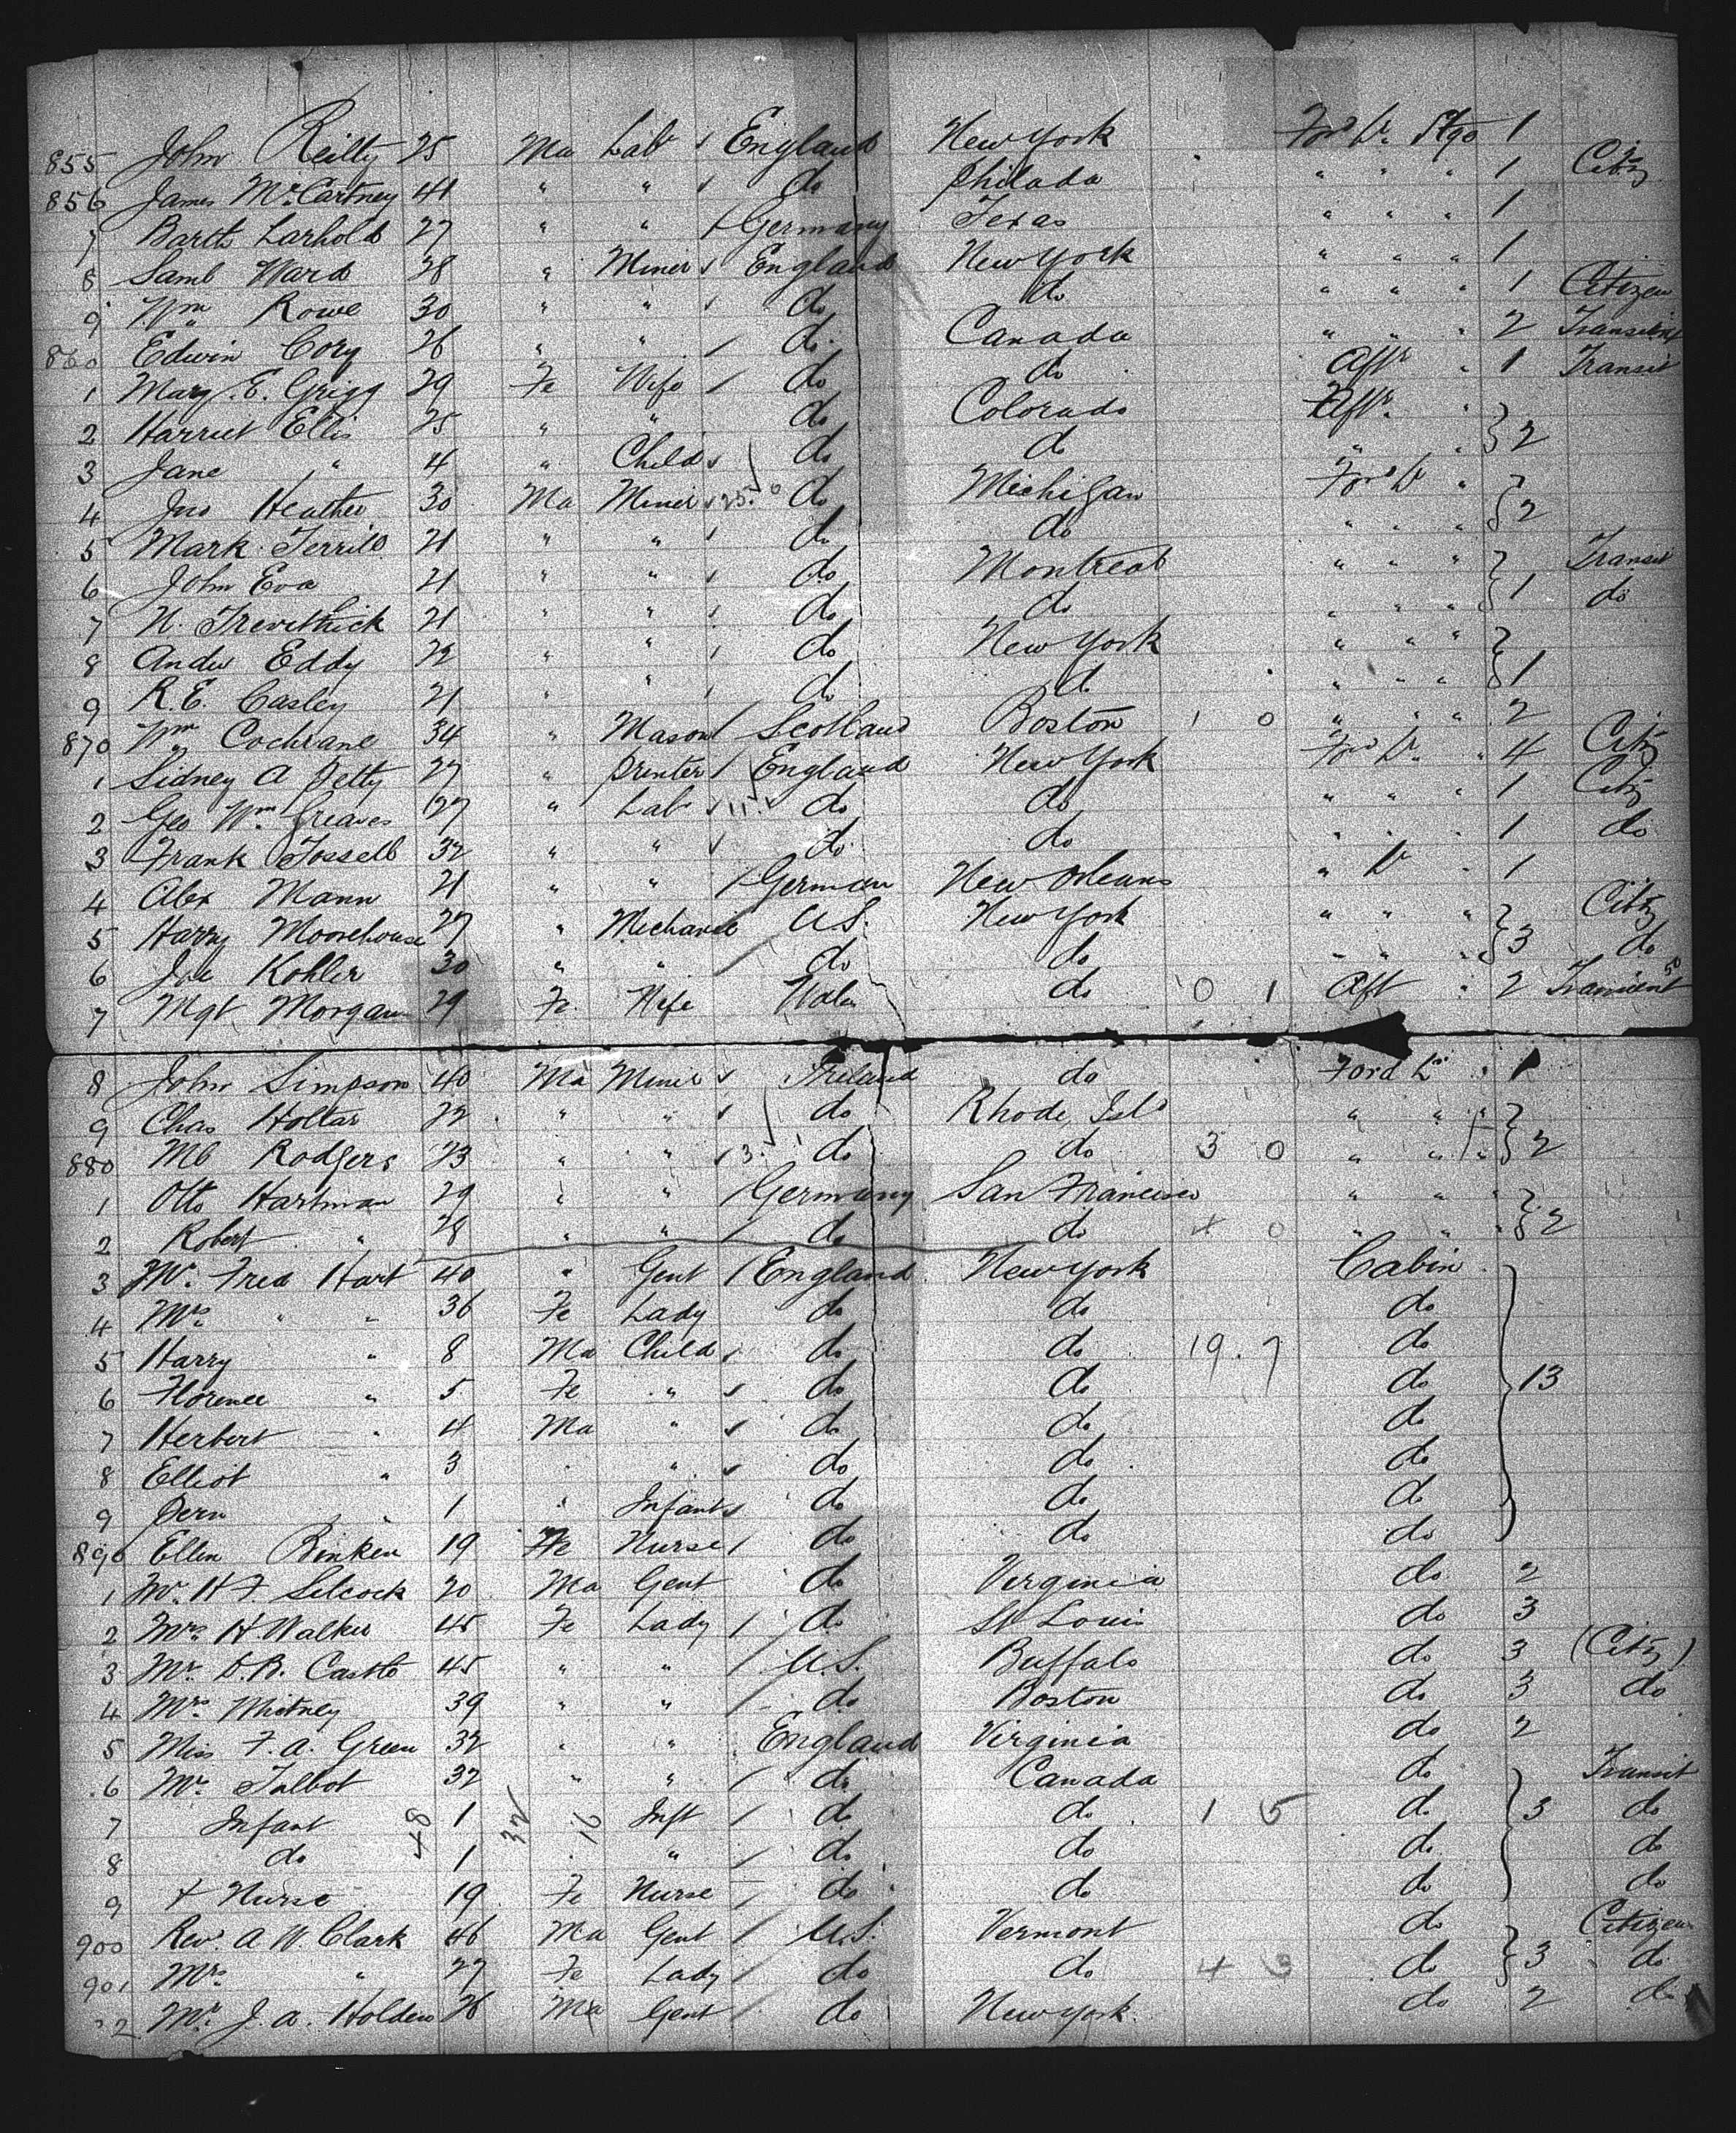 855 John Reilly 25 Ma Labr England New York For'd Lr Stge 1
856 James McCartney 41 " " do Philada " " " 1 Citz
7 27 " " Germany Texas " " " 1
8 Saml Ward 28 " Miner England New York " " " 1
9 Wm Rowe 30 " " do do " " " 1 Citizen
860 Edwin Cory 26 " " do Canada " " " 2
1 Mary E. Grigg 29 Fe Wife do do Aft " 1 Transit
2 Harriet Ellis 25 " " do Colorado Aft "
3 Jane " 4 " Child do do " " 2
4 Jno Heather 30 Ma Miner 25 do Michigan For'd Lr "
5 Mark Terrill 21 " " do do " " " 2
6 John Eva 21 " " do Montreal " " " Transit
7 N. Trevithick 21 " " do do " " " 1 do
8 Andw Eddy 22 " " do New York " " "
9 R.E. Casley 21 " " do do " " " 1
870 Wm Cochrane 34 " Mason Scotland Boston 1 0 " " " 2
1 Sidney A Petty 27 " Printer England New York For'd Lr " 4 Citz
2 Geo Wm Greaves 27 " Labr 11 do do " " " 1 Citz
3 Frank Fossell 32 " " do do " " " 1 do
4 Alex Mann 21 " " German New Orleans " Lr " 1
5 Harry Moorehouse 27 " Mechanic U.S. New York " " " Citz
6 Joe Kohler 30 " " do do " " " 3 do
7 Mgt Morgan 29 Fe Wife Wales do 0 1 Aft " 2 Transient
8 John Simpson 40 Ma Miner Ireland do Ford Lr " 1
9 Chas Holtar 22 " " do Rhode Isld " " "
880 Ml Rodgers 23 " " 3 do do 3 0 " " " 2
1 Otto Hartman 29 " " Germany San Francisco " " "
2 Robert " 28 " " do do 4 0 " " " 2
3 Mr. Fred Hart 40 " Gent England New York Cabin
4 Mrs " " 36 Fe Lady do do do
5 Harry " 8 Ma Child do do 19 . 7 do
6 Florence " 5 Fe " do do do 13
7 Herbert " 4 Ma " do do do
8 Elliot " 3 " " do do do
9 " 1 " Infant do do do
890 Ellen Binken 19 Fe Nurse do do do
1 Mr. H.F. Silcock 20 Ma Gent do Virginia do 2
2 Mrs H Walker 45 Fe Lady do St Louis do 3
3 Mr. D.B. Castle 45 " " U.S. Buffalo do 3 (Citz)
4 Mrs 39 " " do Boston do 3 do
5 Miss F.A. Green 32 " " England Virginia do 2
6 Mr. Talbot 32 " " do Canada do Transit
7 Infant 48 1 32 16 Inft do do 1 5 do 3 do
8 do 1 " " do do do do
9 + Nurse 19 Fe Nurse do do do do
900 Rev. A.W. Clark 46 Ma Gent U.S. Vermont do Citizen
901 Mrs " 27 Fe Lady do do 4 3 do 3 do
2 Mr. J.A. Holden 26 Ma Gent do New York do 2 do